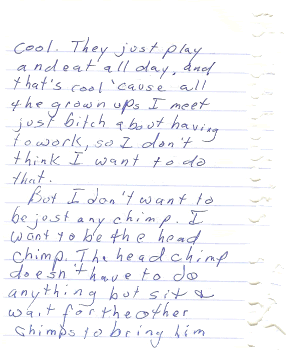 cool. They just play
and eat all day, and
that's cool 'cause all
the grown ups I meet
just bitch about having
to work, so I don't
think I want to do
that.
But I don't want to
be just any chimp. I
want to be the head
chimp. The head chimp
doesn't have to do
anything but sit &
wait for the other
chimps to bring him